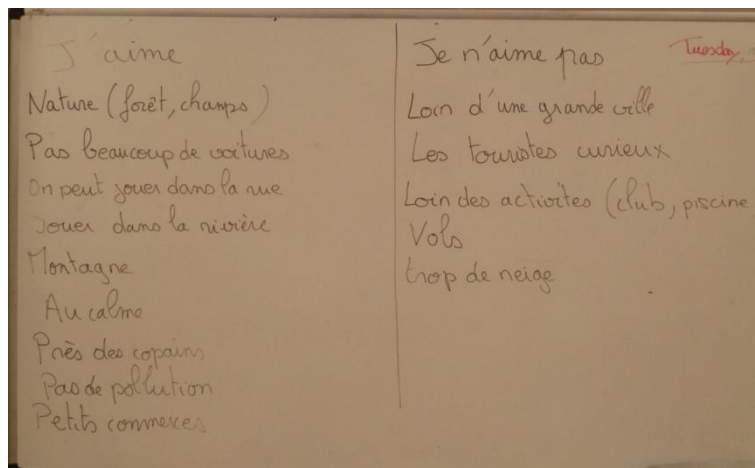 J'aime
Nature (forêt, champs)
Pas beaucoup de voitures
On peut jouer dans la rue
Jouer dans la rivière
Montagne
Au calme
Près des copains
Pas de pollution
Petits commerces
Je n'aime pas
Tuesday,
Loin d'une grande ville
Les touristes curieux
Loin des activites (club, piscine
Vols
trop de neige